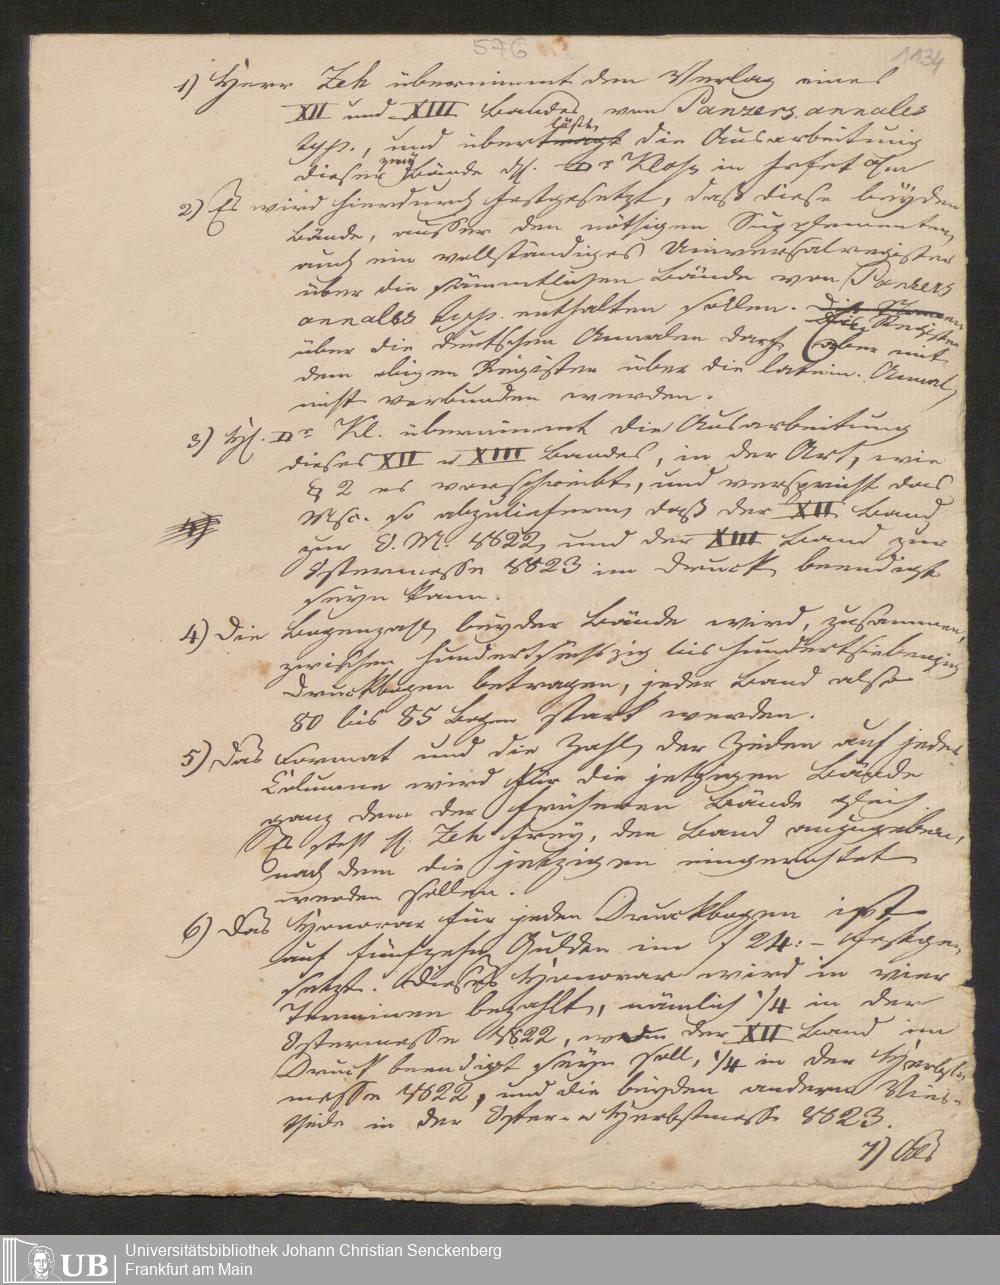 576
1134
1) Herr Zeh übernimmt den Verlag eines
XII und XIII Bandes von Panzers annales
typ., und überträgt läßt die Ausarbeitung
dieser zwey Bände H. Dr Kloß in Frkft a/m
2) Es wird hierdurch festgesetzt, daß diese beyden
Bände, ausser den nöthigen Supplementen,
auch ein vollständiges Universalregister
über die sämmtlichen Bände von Panzers
annales typ. enthalten sollen. Die
Das Register
über die deutschen Annalen darf aber mit
dem obigen Register über die latein. Annal
nicht verbunden werden.
3) H. Dr Kl. übernimmt die Ausarbeitung
dieses XII u XIII Bandes, in der Art, wie
§ 2 es vorschreibt, und verspricht das
Msc. so abzuliefern, daß der XII Band
zur O. M. 1822, und der XIII Band zur
Ostermesse 1823 im Druck beendigt
seyn kann.
4) Die Bogenzahl beyder Bände wird, zusammen,
zwischen hundertsechszig bis hundertsiebenzig
Druckbogen betragen, jeder Band also
80 bis 85 Bogen stark werden.
5) Das Format und die Zahl der Zeilen auf jeder
Columne wird für die jetzigen Bände
ganz dem der früheren Bände gleich.
Es steht H. Zeh frey, den Band anzugeben,
nach dem die jetzigen eingerichtet
werden sollen.
6) Das Honorar für jeden Druckbogen ist
auf fünfzehn Gulden im f 24:– festge-
setzt. Dieses Honorar wird in vier
Terminen bezahlt, nämlich 1/4 in der
Ostermesse 1822, wo der XII Band im
Druck beendigt seyn soll, 1/4 in der Herbst-
messe 1822, und die beyden andern Vier-
theile in der Oster- u Herbstmesse 1823.
7) Das
UB
Universitätsbibliothek Johann Christian Senckenberg
Frankfurt am Main